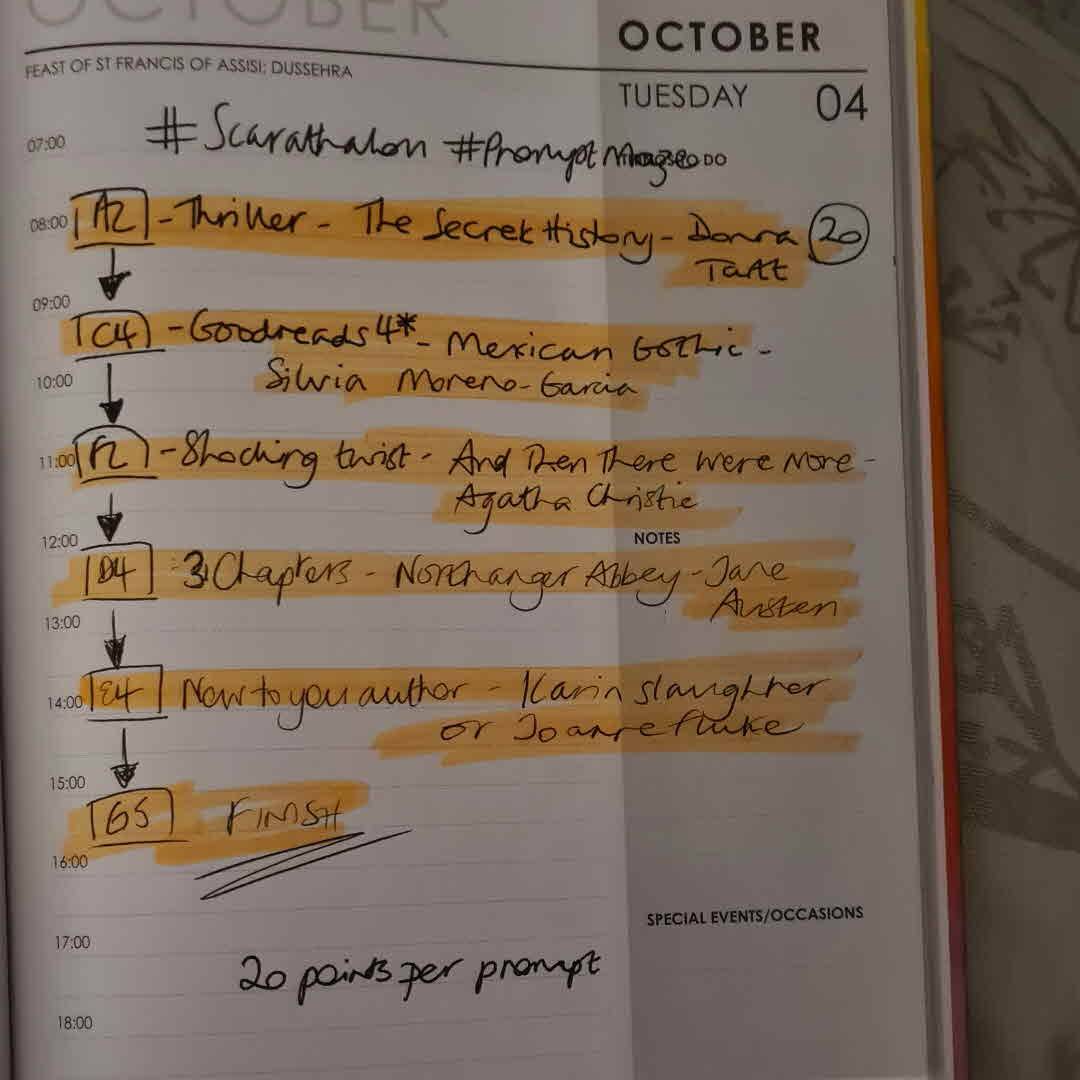 OCTOBER
OCTOBER
FEAST OF ST FRANCIS OF ASSISI; DUSSEHRA
TUESDAY 04
07:00 #Scarathalon #PromptMaze DO
08:00 A2 - Thriller - The Secret History - Donna 20
Tartt
09:00
C4 - Goodreads 4* - Mexican Gothic -
10:00 Silvia Moreno-Garcia
11:00 F2 - Shocking twist - And Then There Were More -
Agatha Christie
12:00 NOTES
D4 3 Chapters - Northanger Abbey - Jane
Austen
13:00
14:00 E4 New to you author - Karin Slaughter
or Joanne fluke
15:00
G5 FINISH
16:00
SPECIAL EVENTS/OCCASIONS
17:00
20 points per prompt
18:00